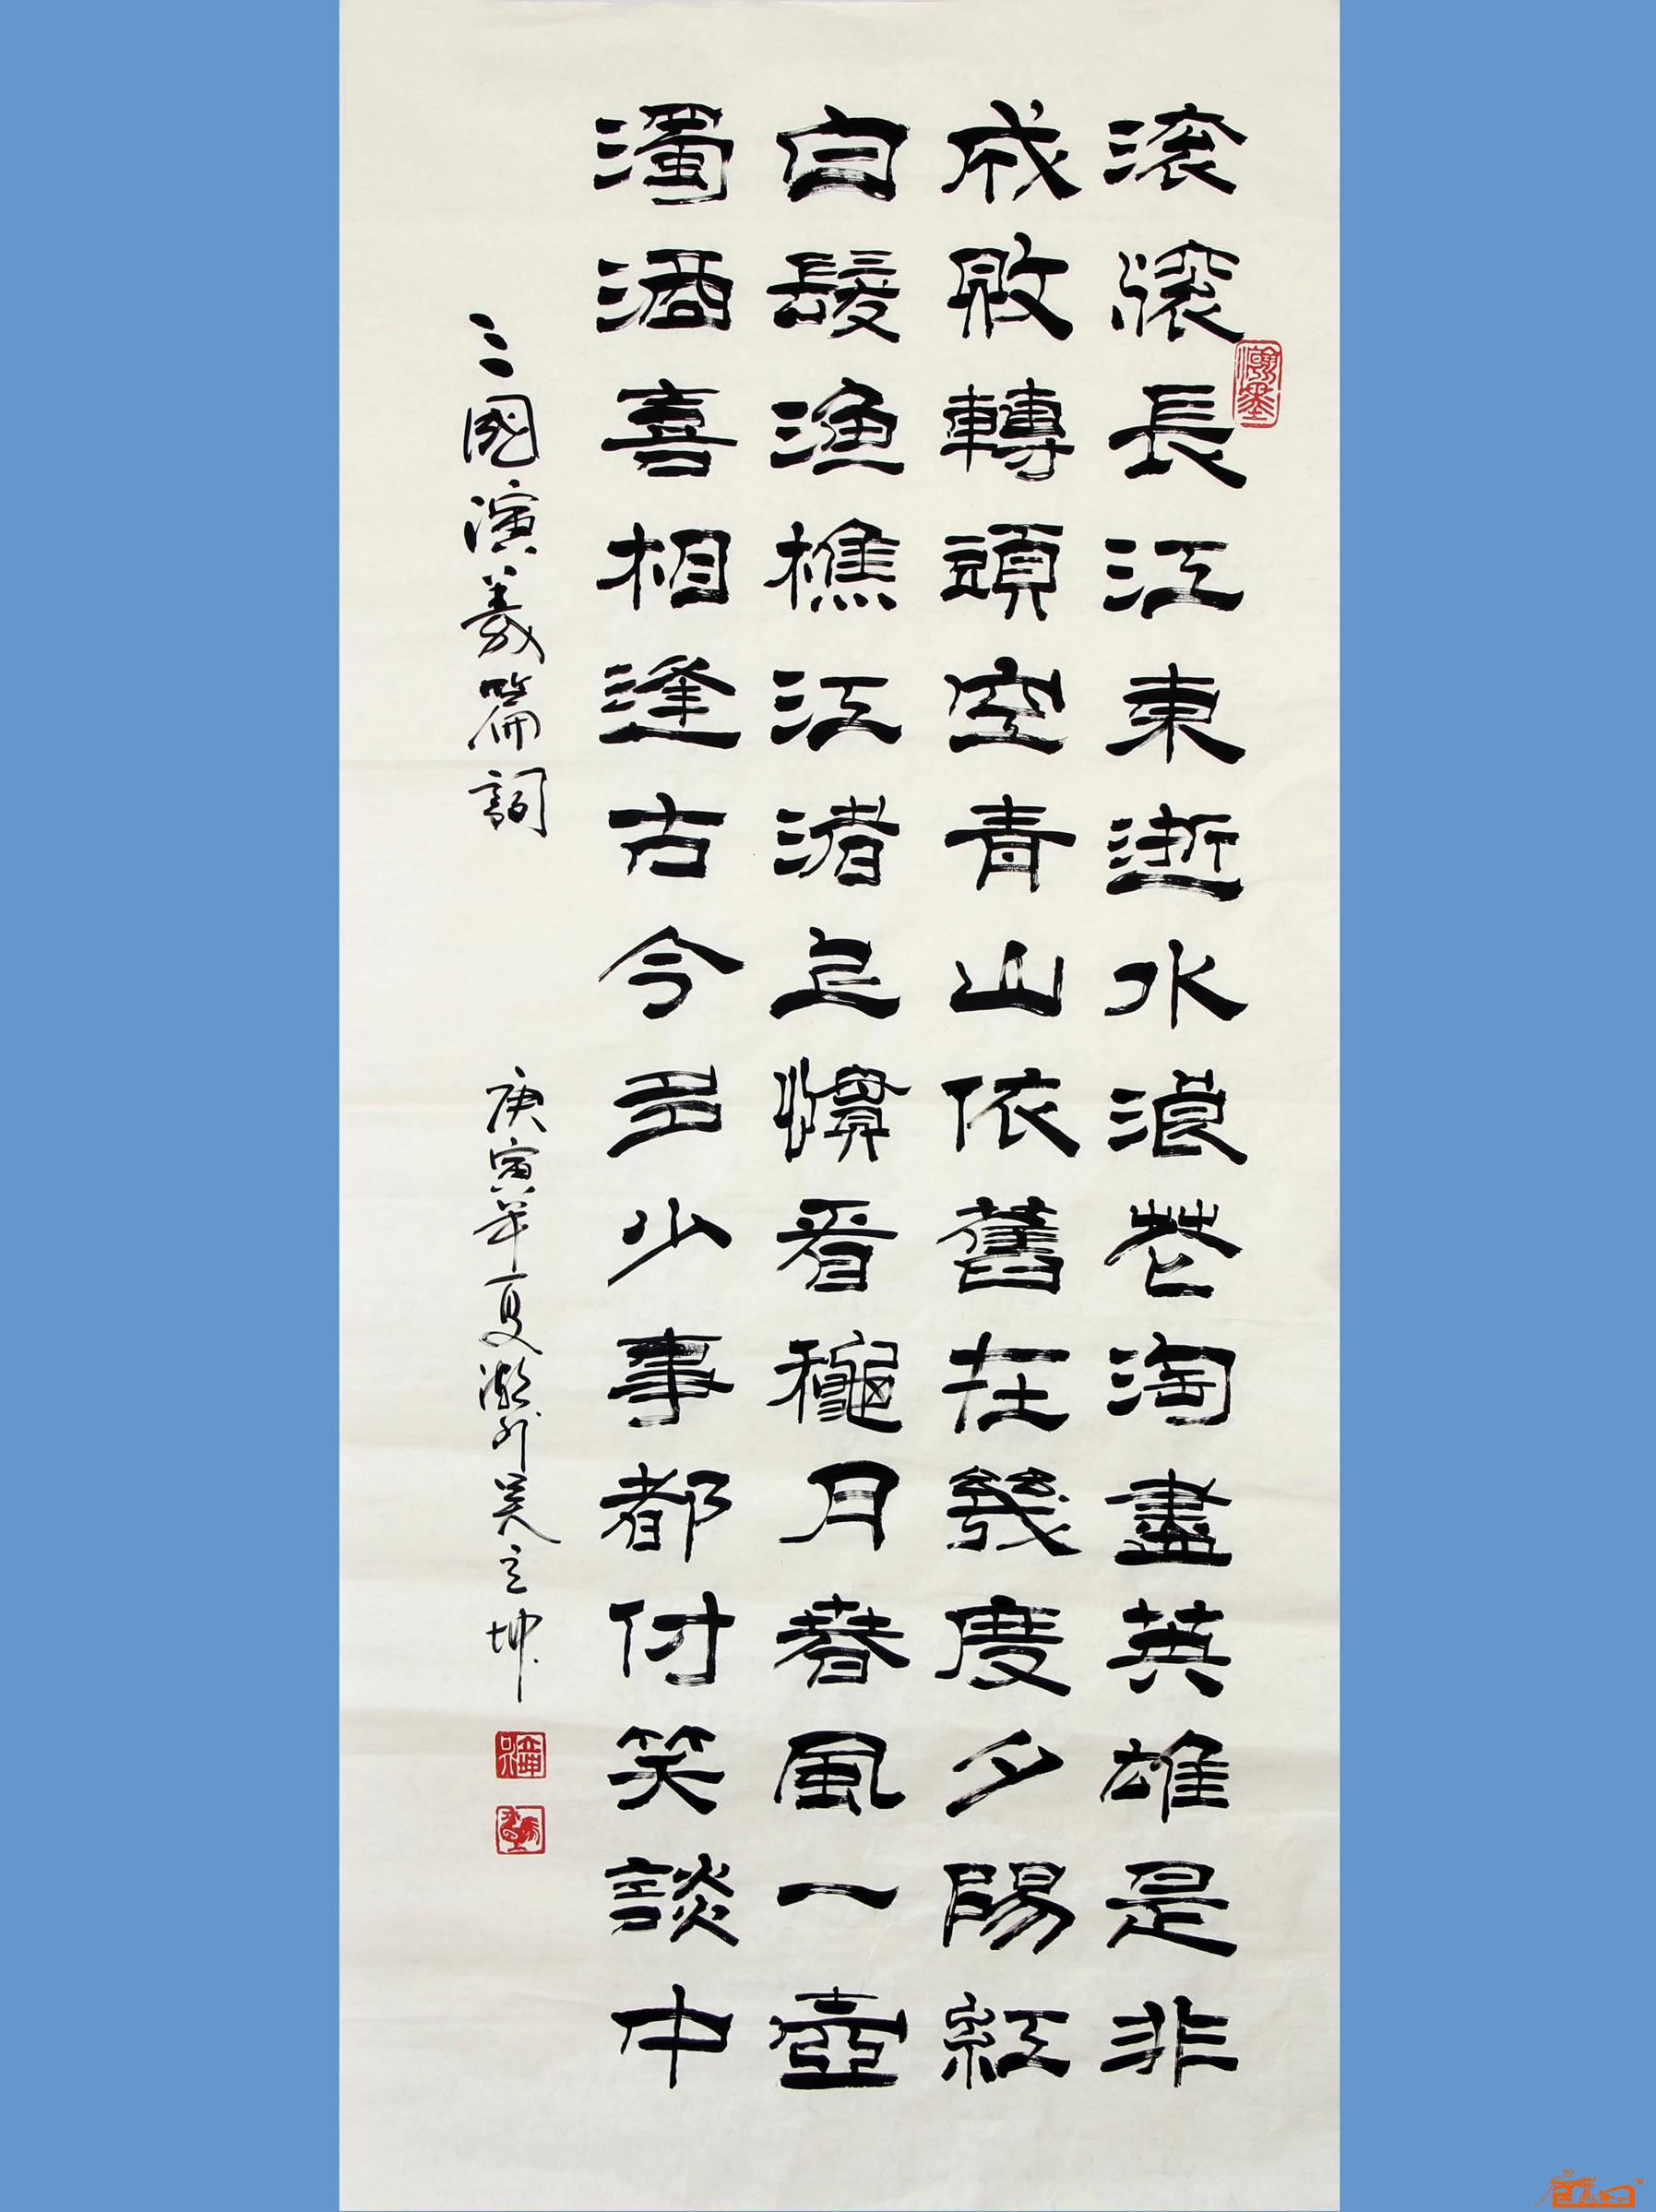 滚滚長江東逝水浪花淘盡英雄是非
成敗轉頭空青山依舊在幾度夕陽紅
白髮漁樵江渚上慣看秋月春風一壺
濁酒喜相逢古今多少事都付笑談中
三國演義篇詞
庚寅年夏潮州吴立坤
瀚墨